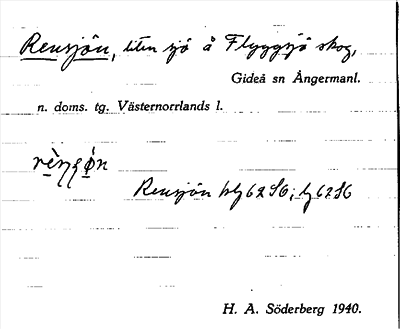 Rensjön, liten sjö å Flyggsjö skog,
Gideå sn Ångermanl.
n. doms. tg. Västernorrlands l.
Rensjön
H. A. Söderberg 1940.